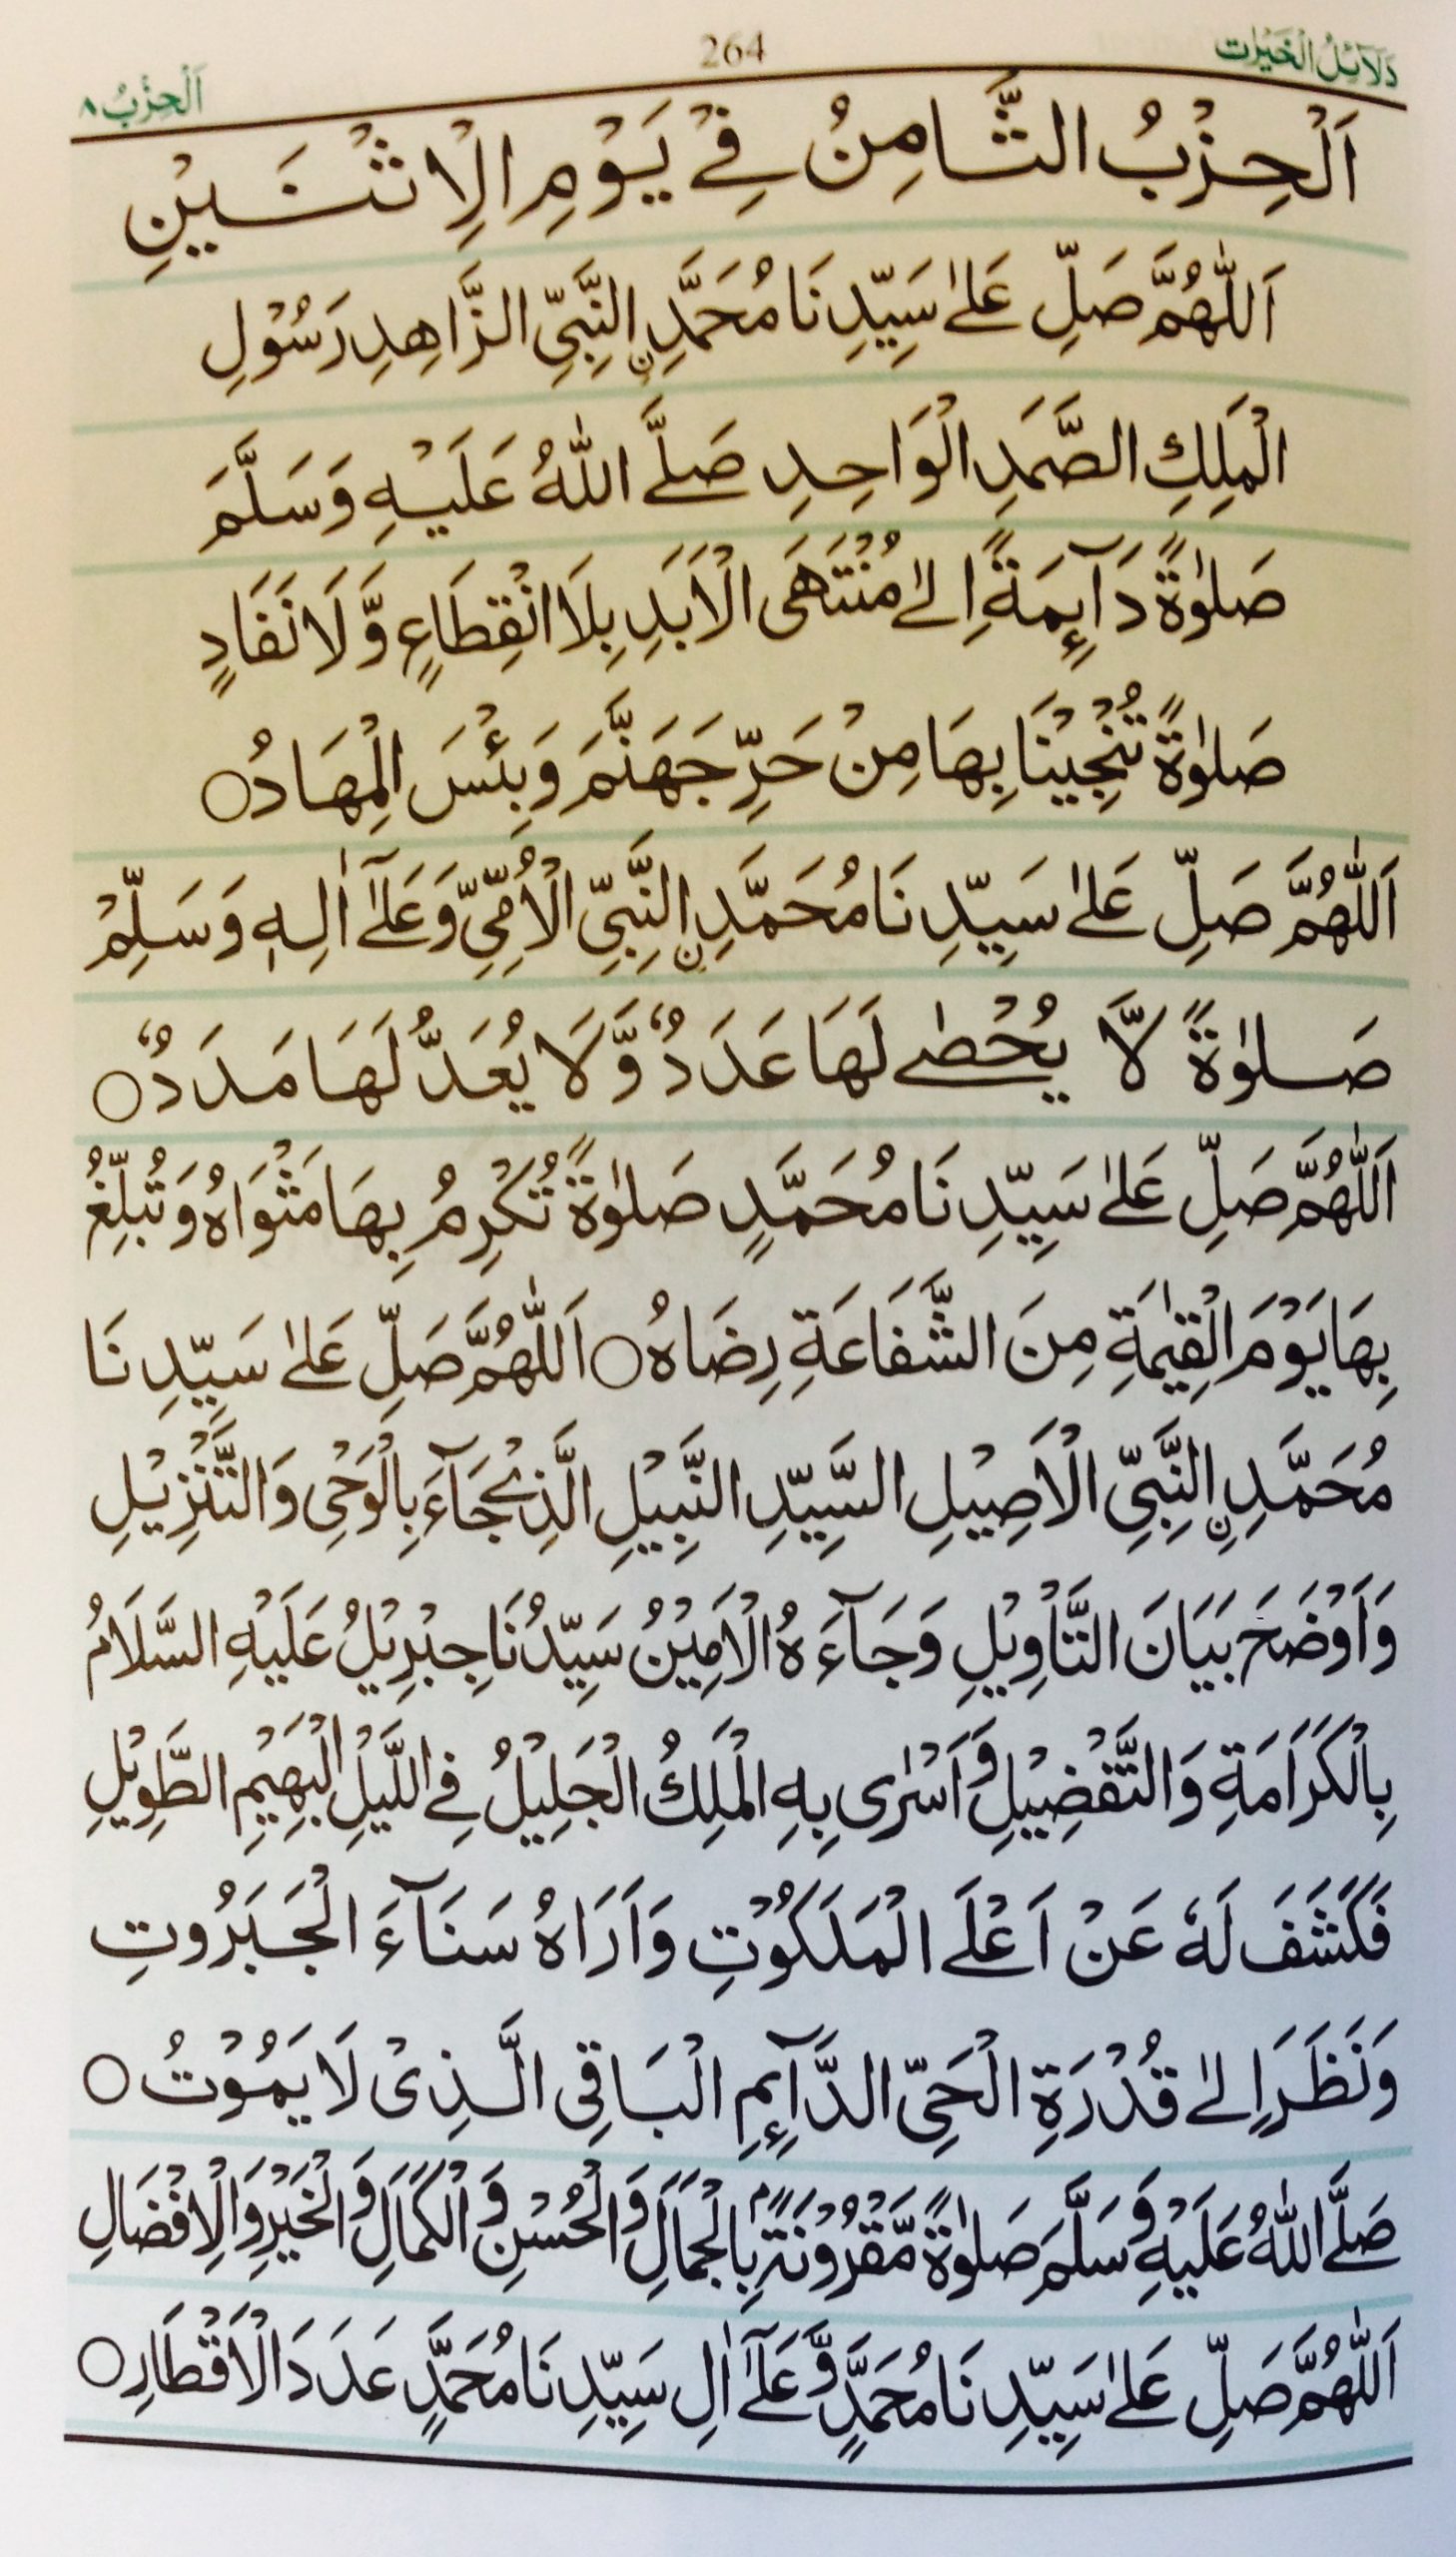 دَلَائِلُ الْخَيْرٰت
264
اَلْحِزْبُ ٨
اَلْحِزْبُ الثَّامِنُ فِيْ يَوْمِ الْاِثْنَيْنِ
اَللّٰهُمَّ صَلِّ عَلٰى سَيِّدِنَا مُحَمَّدِ ۨالنَّبِيِّ الزَّاهِدِ رَسُوْلِ
الْمَلِكِ الصَّمَدِ الْوَاحِدِ صَلَّى اللّٰهُ عَلَيْهِ وَسَلَّمَ
صَلٰوةً دَآئِمَةً اِلٰى مُنْتَهَى الْاَبَدِ بِلَا انْقِطَاعٍ وَّلَا نَفَادٍ
صَلٰوةً تُنْجِيْنَا بِهَا مِنْ حَرِّ جَهَنَّمَ وَبِئْسَ الْمِهَادُ○
اَللّٰهُمَّ صَلِّ عَلٰى سَيِّدِنَا مُحَمَّدِ ۨالنَّبِيِّ الْاُمِّيِّ وَعَلٰٓى اٰلِهٖ وَسَلِّمْ
صَلٰوةً لَّا يُحْصٰى لَهَا عَدَدٌ وَّلَا يُعَدُّ لَهَا مَدَدٌ○
اَللّٰهُمَّ صَلِّ عَلٰى سَيِّدِنَا مُحَمَّدٍ صَلٰوةً تُكْرِمُ بِهَا مَثْوَاهُ وَتُبَلِّغُ
بِهَا يَوْمَ الْقِيٰمَةِ مِنَ الشَّفَاعَةِ رِضَاهُ○ اَللّٰهُمَّ صَلِّ عَلٰى سَيِّدِنَا
مُحَمَّدِ ۨالنَّبِيِّ الْاَصِيْلِ السَّيِّدِ النَّبِيْلِ الَّذِيْ جَآءَ بِالْوَحْيِ وَالتَّنْزِيْلِ
وَاَوْضَحَ بَيَانَ التَّأْوِيْلِ وَجَآءَهُ الْاَمِيْنُ سَيِّدُنَا جِبْرِيْلُ عَلَيْهِ السَّلَامُ
بِالْكَرَامَةِ وَالتَّفْضِيْلِ وَاَسْرٰى بِهِ الْمَلِكُ الْجَلِيْلُ فِي اللَّيْلِ الْبَهِيْمِ الطَّوِيْلِ
فَكَشَفَ لَهٗ عَنْ اَعْلَى الْمَلَكُوْتِ وَاَرَاهُ سَنَآءَ الْجَبَرُوتِ
وَنَظَرَ اِلٰى قُدْرَةِ الْحَيِّ الدَّآئِمِ الْبَاقِي الَّذِيْ لَا يَمُوْتُ○
صَلَّى اللّٰهُ عَلَيْهِ وَسَلَّمَ صَلٰوةً مَّقْرُوْنَةً ۢ بِالْجَمَالِ وَالْحُسْنِ وَالْكَمَالِ وَالْخَيْرِ وَالْاِفْضَالِ
اَللّٰهُمَّ صَلِّ عَلٰى سَيِّدِنَا مُحَمَّدٍ وَّعَلٰٓى اٰلِ سَيِّدِنَا مُحَمَّدٍ عَدَدَ الْاَقْطَارِ○